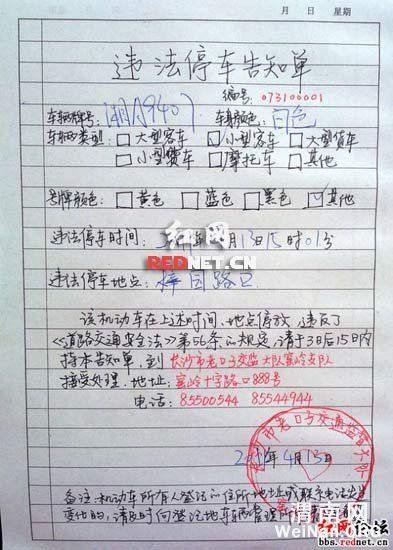 月 日 星期
违法停车告知单
编号: 073100001
车辆牌号: 湘A9407 车身颜色: 白色
车辆类型: 大型客车 小型客车 大型货车
小型货车 摩托车 其他
号牌颜色: 黄色 蓝色 黑色 其他
红网
REDNET.CN
违法停车时间: 月13日 时01分
违法停车地点: 梓园路口
该机动车在上述时间、地点停放, 违反了
《道路交通安全法》第56条的规定, 请于3日后15日内
持本告知单, 到 长沙市老口子交监大队蜜岭支队
接受处理, 地址: 蜜岭十字路口888号
电话: 85500544 85544944
市老口子交通监督大队
4月13日
备注: 机动车所有人登记的住所地址或联系电话发生
变化的, 请及时向登记地车辆管理所
渭南网
WeiNan
红网论坛
bbs.rednet.cn